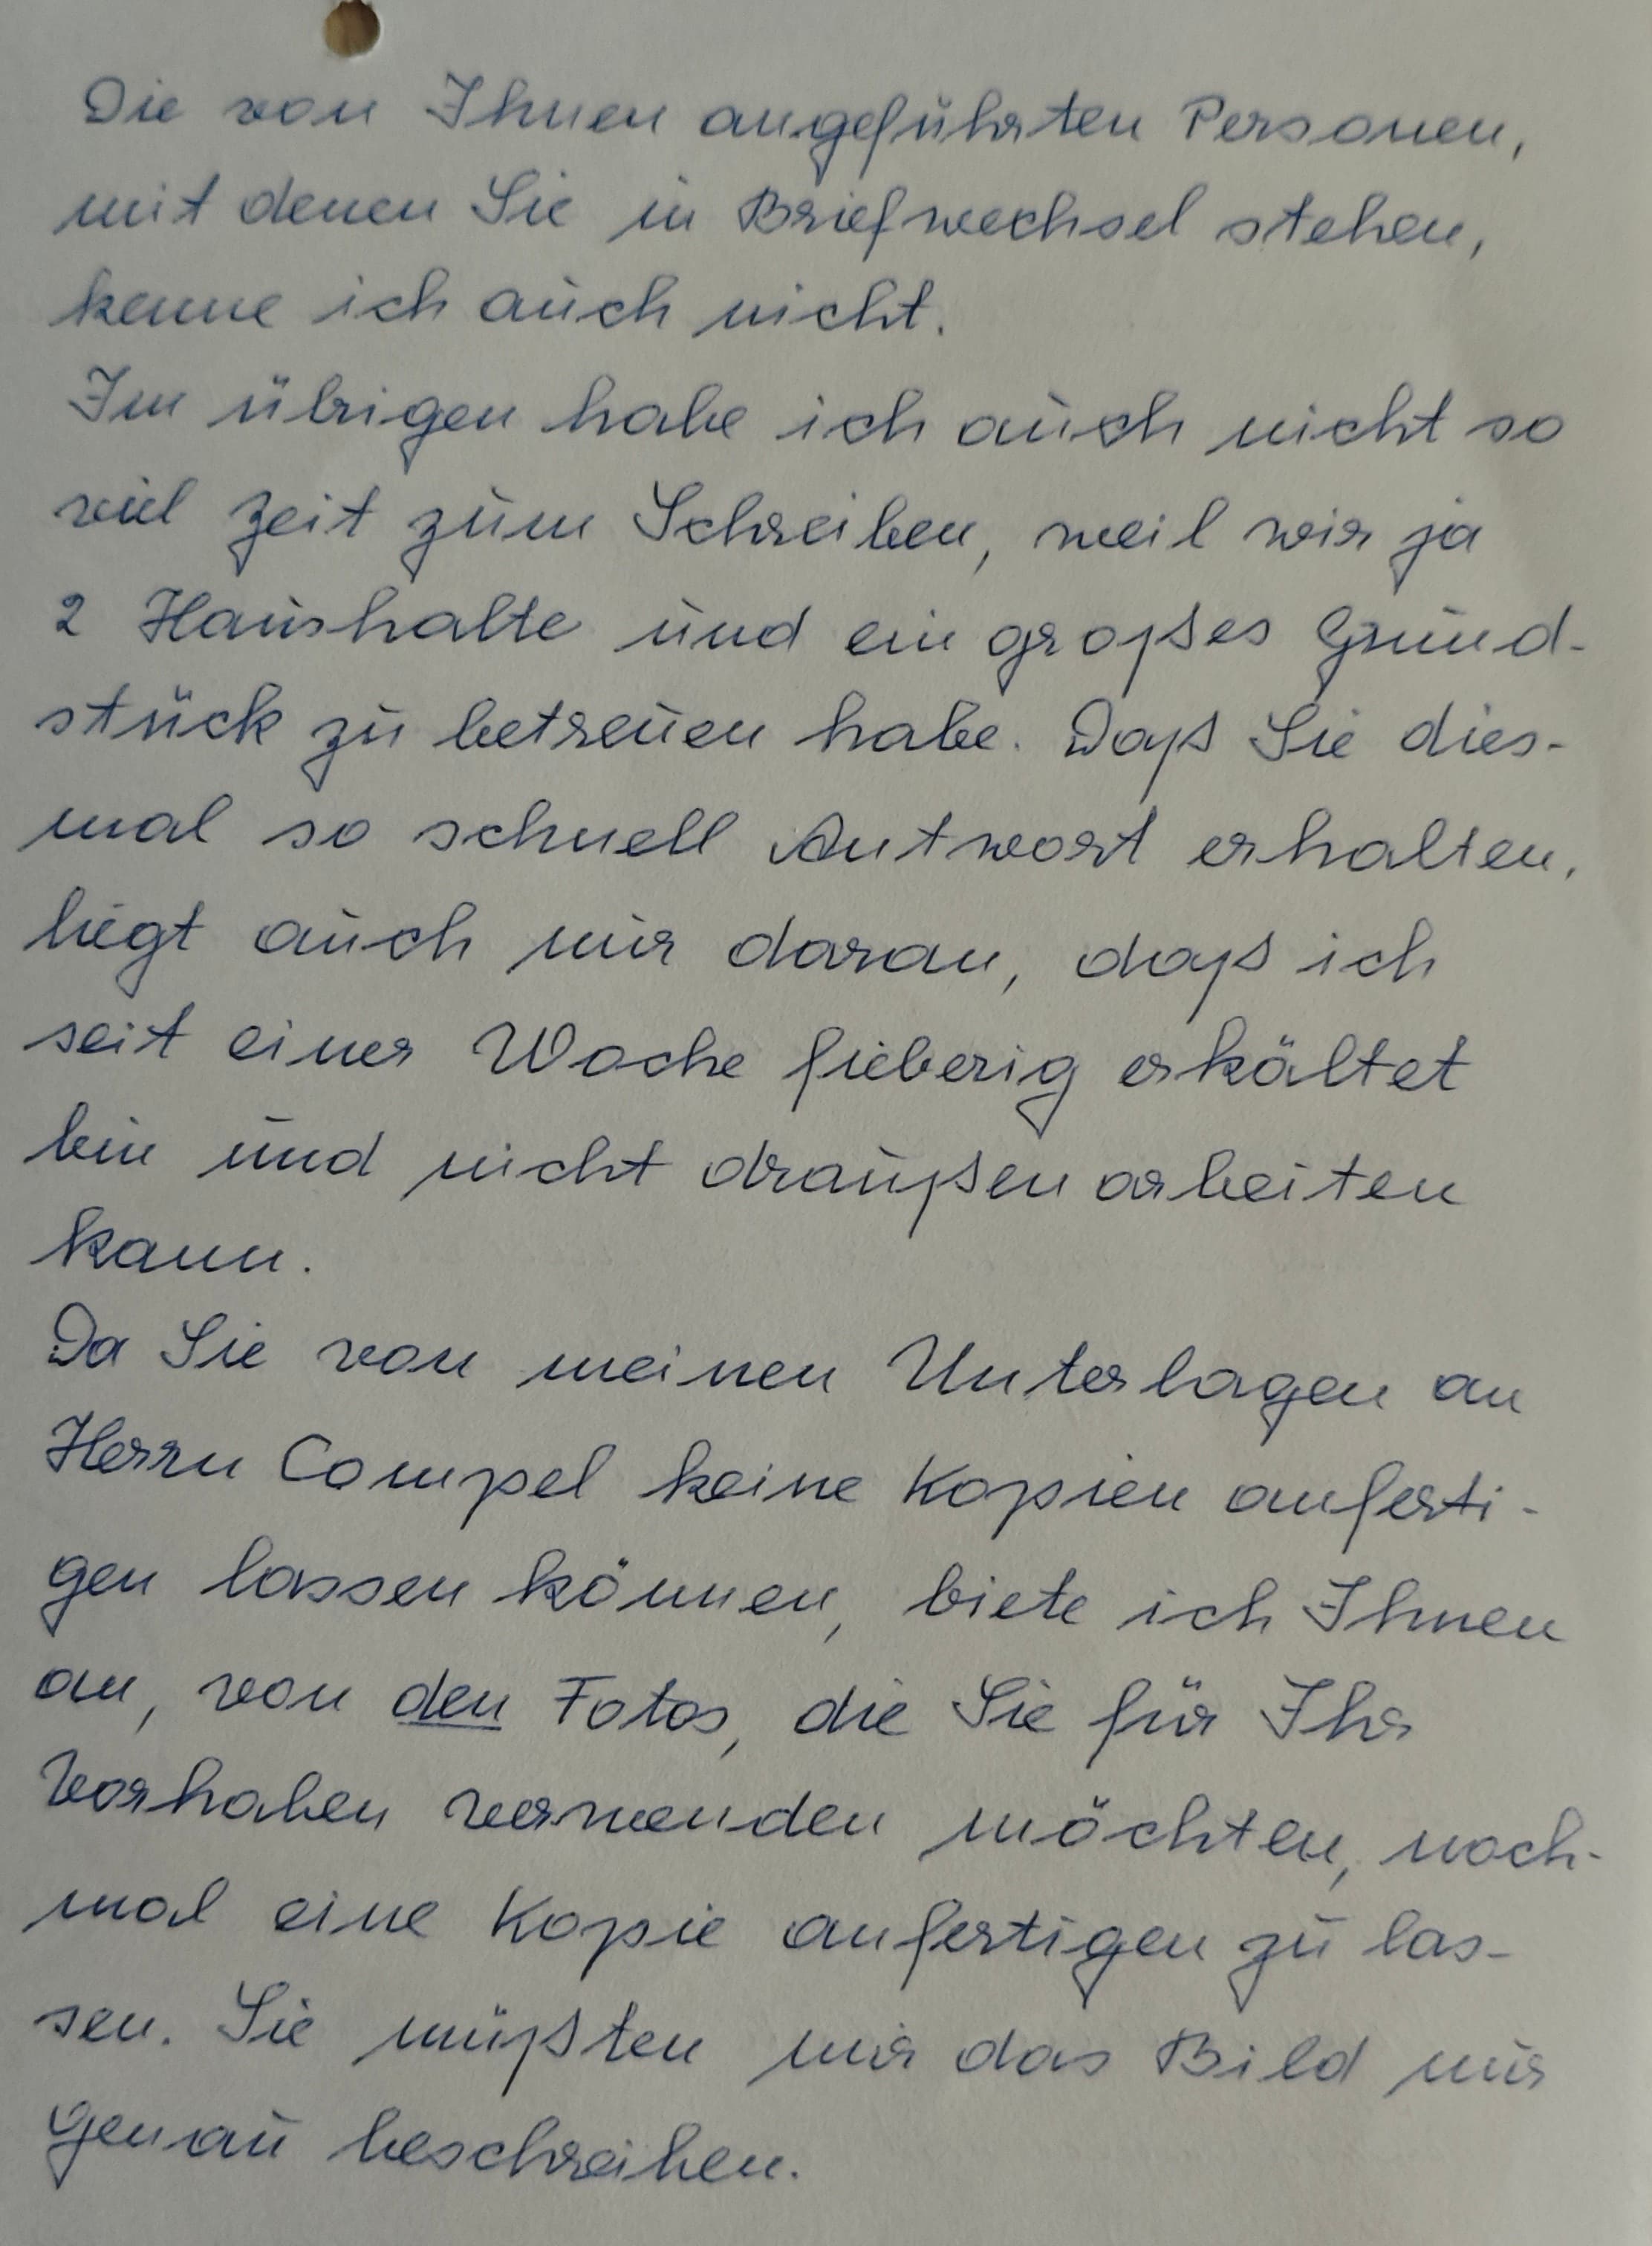 Die von Ihnen angeführten Personen,
mit denen Sie in Briefwechsel stehen,
kenne ich auch nicht.
Im übrigen habe ich auch nicht so
viel Zeit zum Schreiben, weil wir ja
2 Haushalte und ein großes Grund-
stück zu betreuen habe. Daß Sie dies-
mal so schnell Antwort erhalten,
liegt auch nur daran, daß ich
seit einer Woche fieberig erkältet
bin und nicht draußen arbeiten
kann.
Da Sie von meinen Unterlagen an
Herrn Compel keine Kopien anferti-
gen lassen können, biete ich Ihnen
an, von den Fotos, die Sie für Ihr
Vorhaben verwenden möchten, noch-
mal eine Kopie anfertigen zu las-
sen. Sie müßten mir das Bild nur
genau beschreiben.